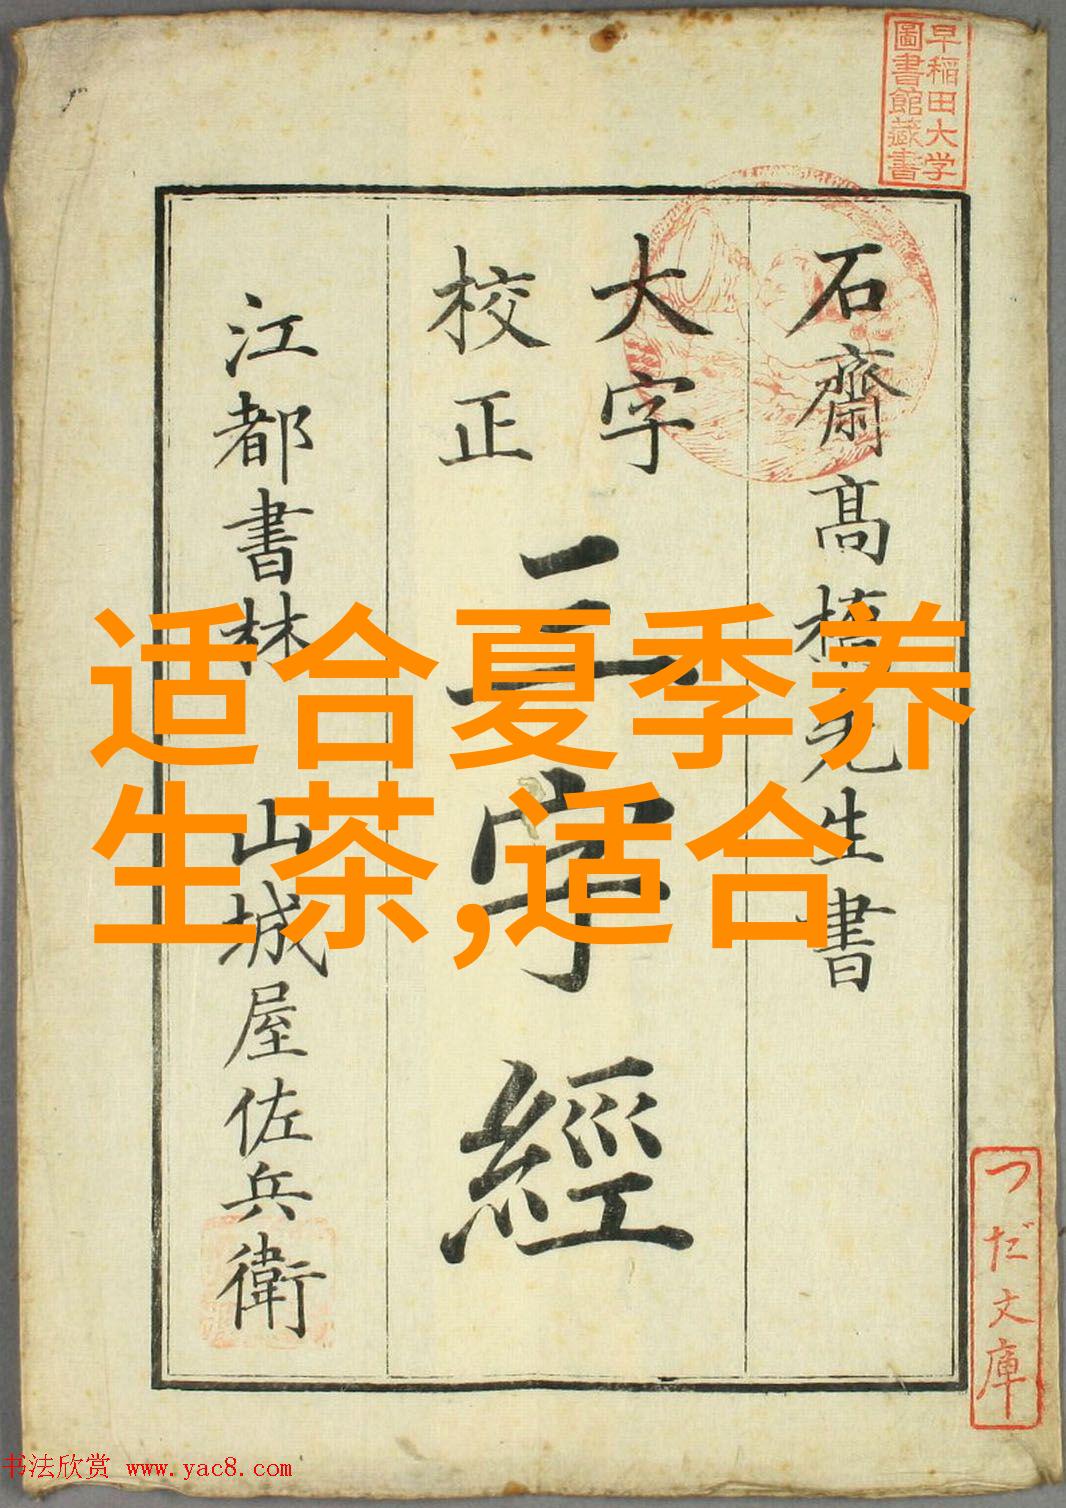 早稲田大学
圖書館藏書
石齋高橋先生書
大字
校正
三字經
江都書林 山城屋佐兵衛
适合夏季养
生茶,适合
つだ文庫
书法欣赏 www.yac8.com